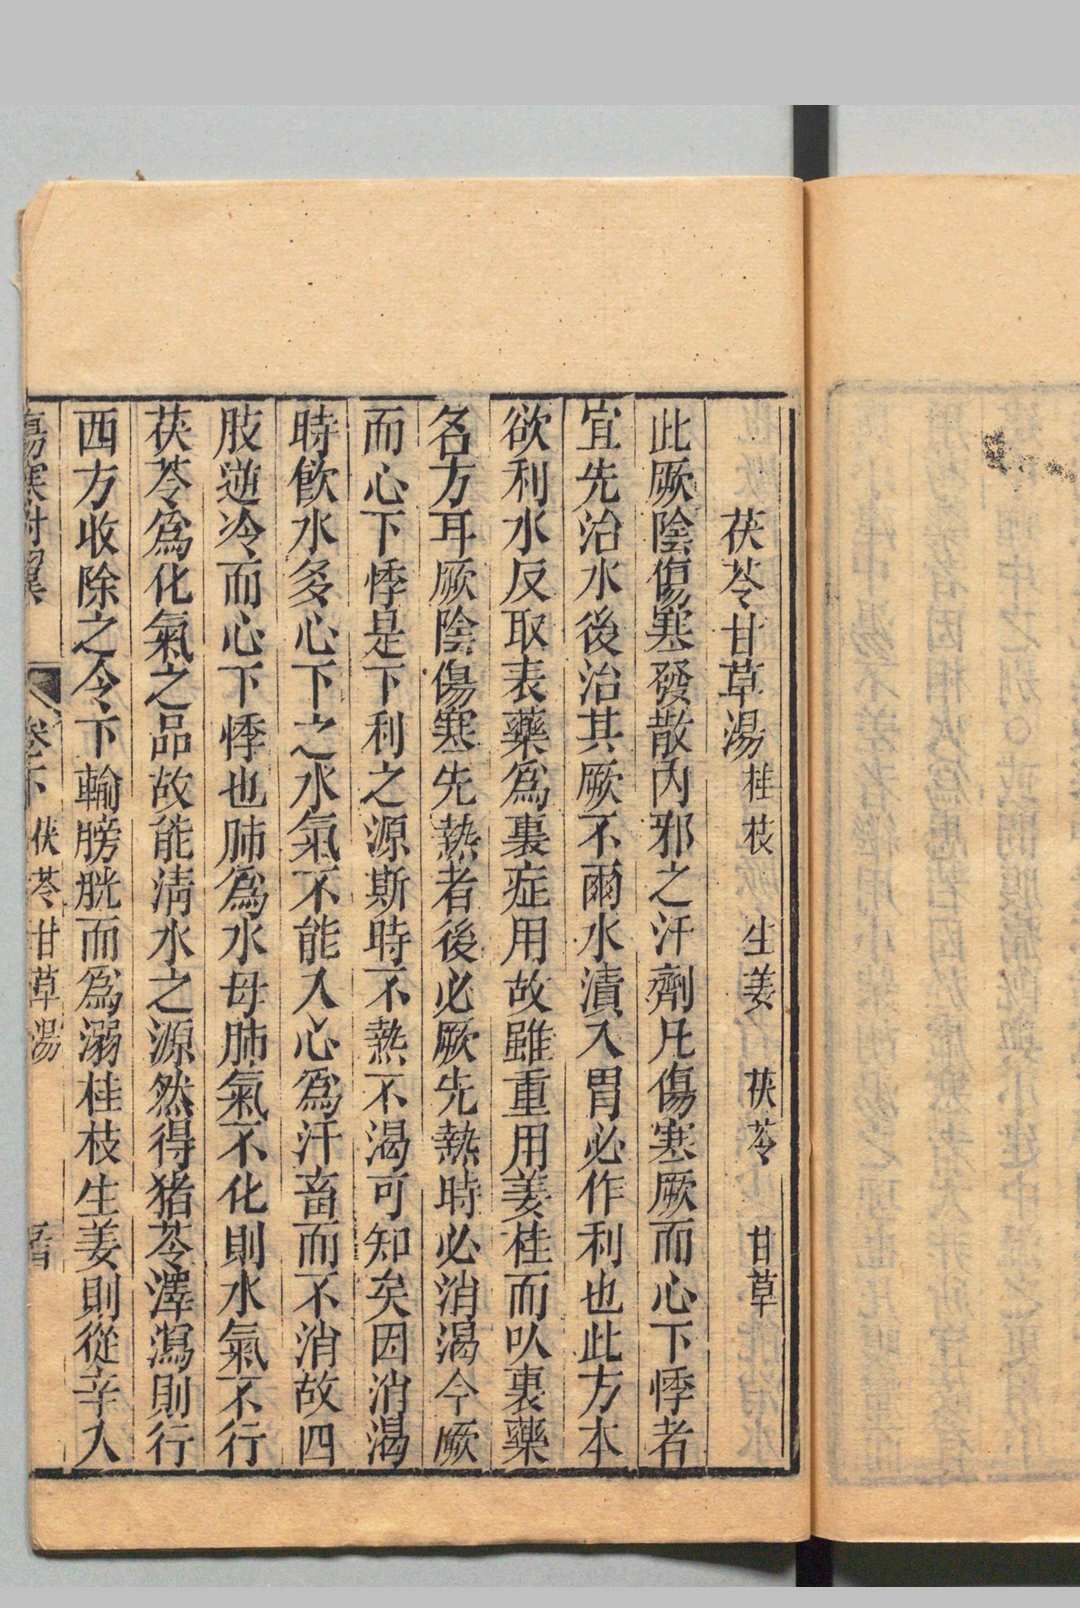 茯苓甘草湯 桂枝 生姜 茯苓 甘草
此厥陰傷寒發散內邪之汗劑凡傷寒厥而心下悸者
宜先治水後治其厥不爾水漬入胃必作利也此方本
欲利水反取表藥爲裏症用故雖重用姜桂而以裏藥
名方耳厥陰傷寒先熱者後必厥先熱時必消渴今厥
而心下悸是下利之源斯時不熱不渴可知矣因消渴
時飲水多心下之水氣不能入心爲汗畜而不消故四
肢逆冷而心下悸也肺爲水母肺氣不化則水氣不行
茯苓爲化氣之品故能清水之源然得猪苓澤瀉則行
西方收除之令下輸膀胱而爲溺桂枝生姜則從辛入
傷寒附翼 卷下 茯苓甘草湯